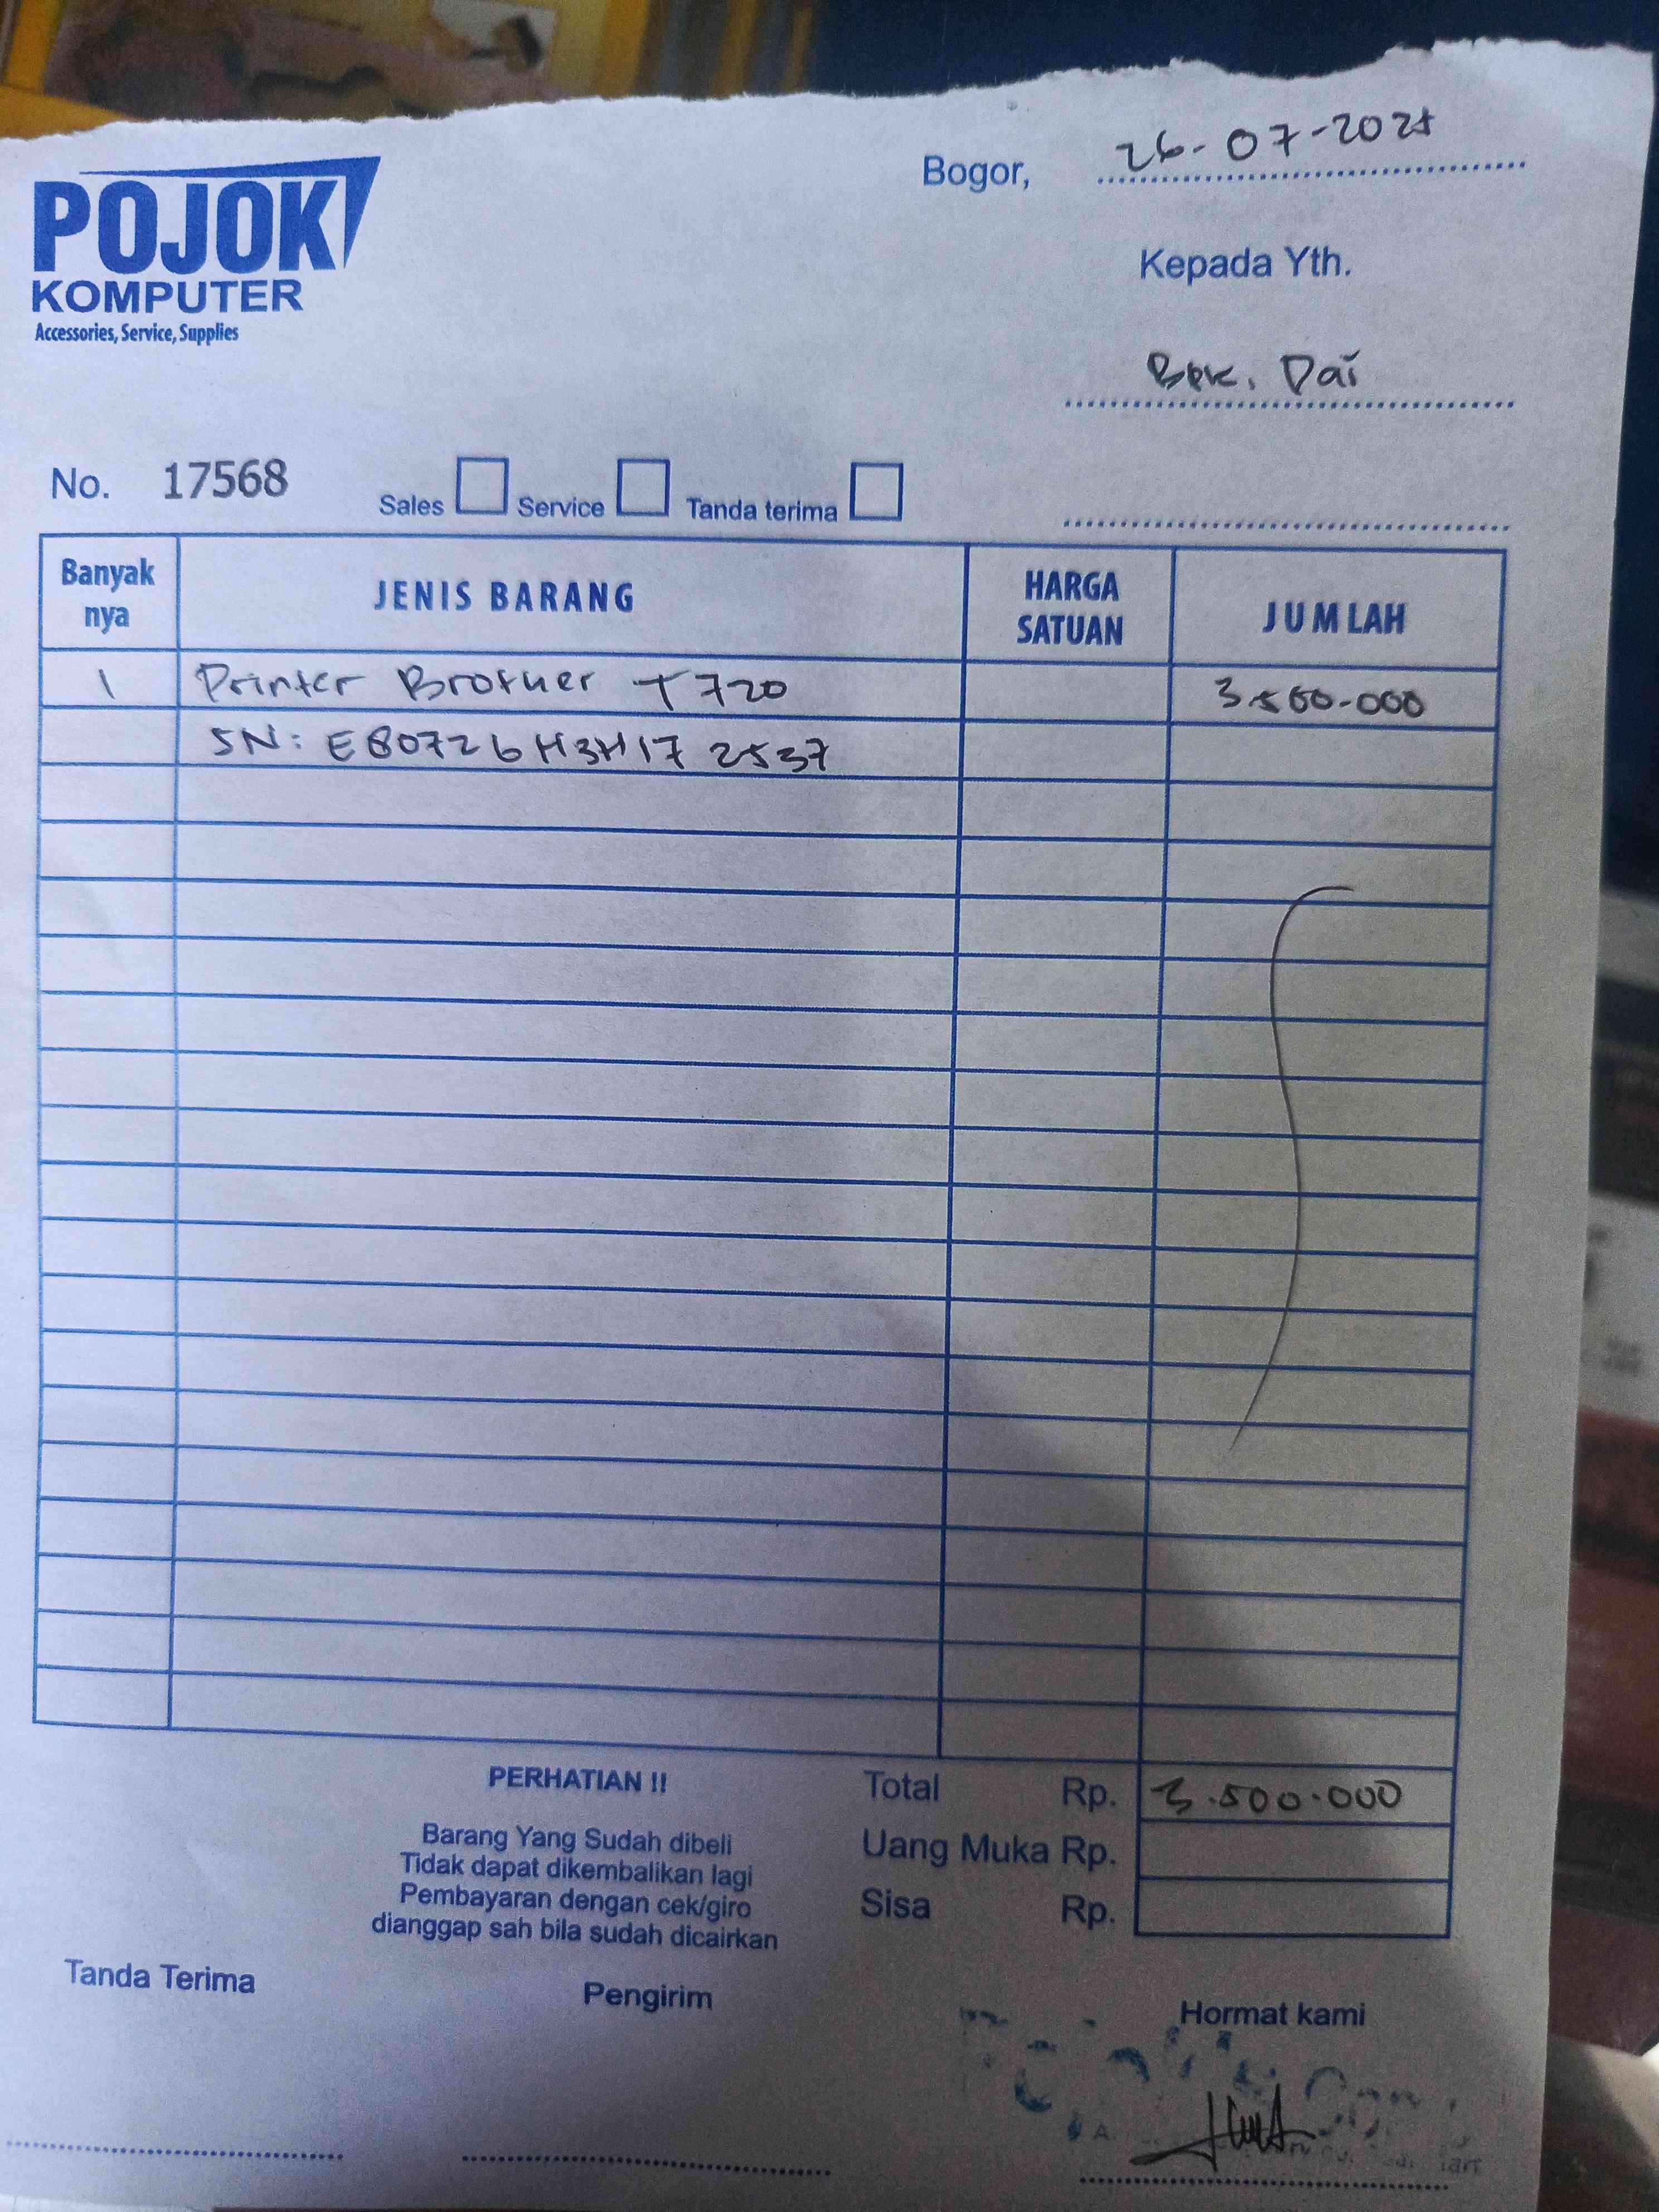 POJOK
KOMPUTER
Accessories, Service, Supplies
Bogor, 26-07-2025
Kepada Yth.
Bpk. Dai
No. 17568 Sales Service Tanda terima
Banyak nya JENIS BARANG HARGA SATUAN JUMLAH
1 Printer Brother T720 3.500.000
SN: E80726H3H172537
PERHATIAN !!
Barang Yang Sudah dibeli
Tidak dapat dikembalikan lagi
Pembayaran dengan cek/giro
dianggap sah bila sudah dicairkan
Total Rp. 3.500.000
Uang Muka Rp.
Sisa Rp.
Tanda Terima
Pengirim
Hormat kami